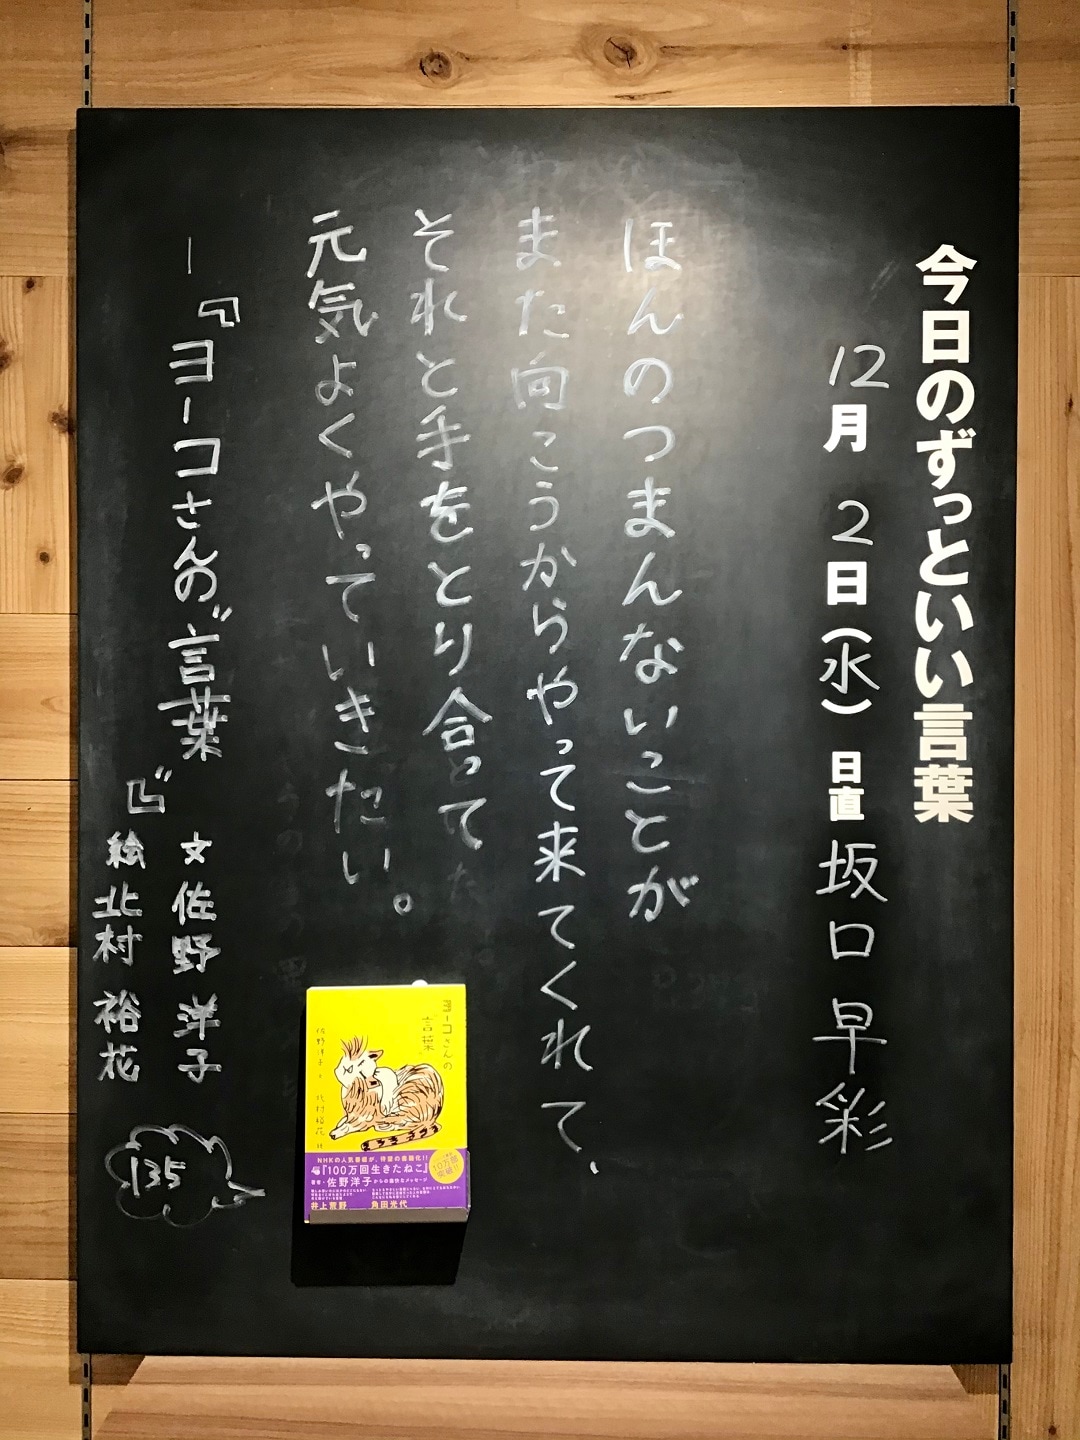 今日のずっといい言葉
12月2日(水) 日直 坂口早彩
ほんのつまんないことが
また向こうからやって来てくれて、
それと手をとり合って
元気よくやっていきたい。
―『ヨーコさんの〝言葉〟』
文 佐野洋子
絵 北村裕花
135
ヨーコさんの
〝言葉〟
佐野洋子 文
北村裕花 絵
NHKの人気番組が、待望の書籍化!!
『100万回生きたねこ』
著者・佐野洋子からの痛快なメッセージ
10万部
突破!!
井上荒野
角田光代